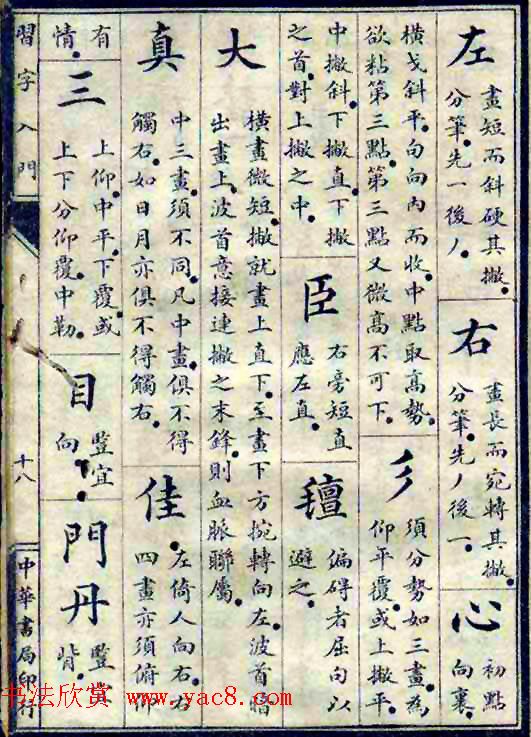 左
畫短而斜硬其撇。
分筆。先一後丿。
右
畫長而宛轉其撇。
分筆。先丿後一。
心
初點
向裏。
橫戈斜平。勾向內而收。中點取高勢。
欲粘第三點。第三點又微高不可下。
彡
須分勢如三畫。為
仰平覆。或上撇平。
中撇斜。下撇直。下撇
之首。對上撇之中。
臣
右旁短直。
應左直。
偏碍者屈勾以
避之。
大
橫畫微短。撇就畫上直下。至畫下方捥轉向左。波首暗
出畫上。波首意接連撇之末鋒。則血脈聯屬。
真
中三畫。須不同。凡中畫。俱不得
觸右。如日月亦俱不得觸右。
佳
左倚人向右。右
四畫亦須俯仰
有
情。
三
上仰。中平。下覆。或
上下分仰覆。中勒。
目
豎宜
向。
門丹
豎貴
背。
習字入門
十八
中華書局印行
书法欣赏 www.yac8.com